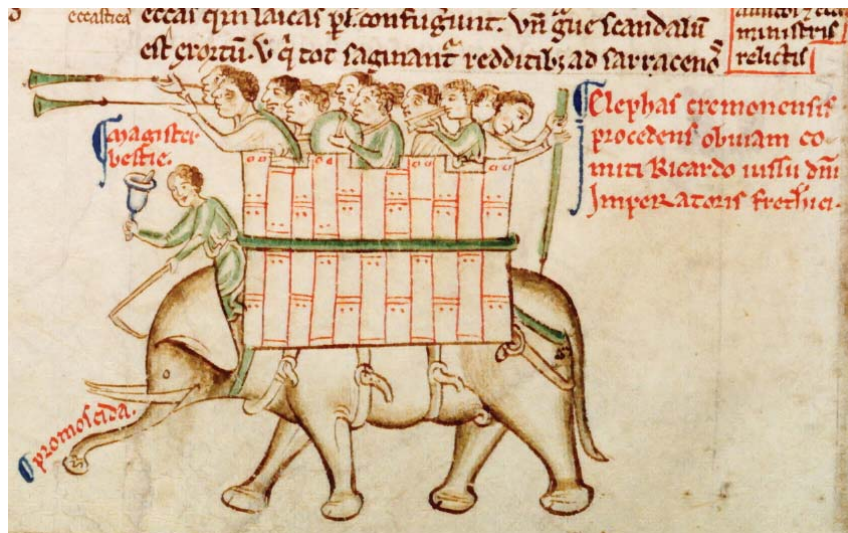 confugiunt. vn̄ gue scandalū
est exortū. tot saginant redditibꝫ ad sarracenos
ministris
relictis
Magister
bestie.
Elephas cremonensis
procedens obuiam co-
miti Ricardo iussu dn̄i
Imperatoris fretherici.
promoscida.